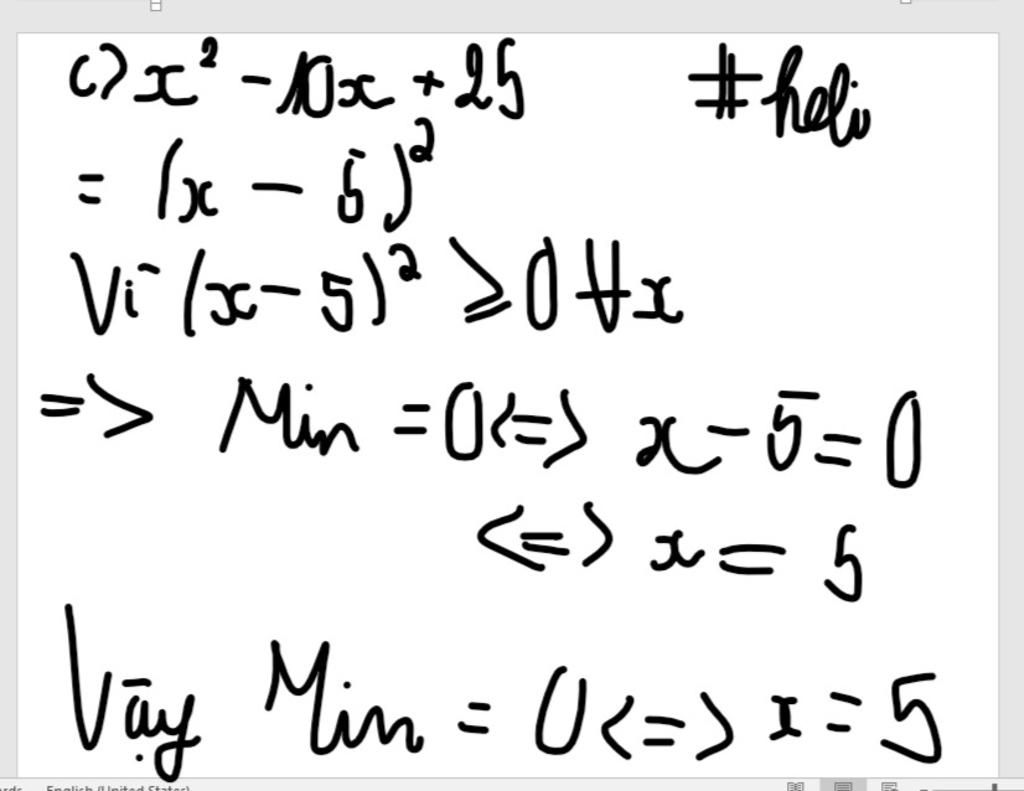 c) x² - 10x + 25 #heliu
= (x - 5)²
Vì (x - 5)² ≥ 0 ∀x
=> Min = 0 <=> x - 5 = 0
<=> x = 5
Vậy Min = 0 <=> x = 5
English (United States)